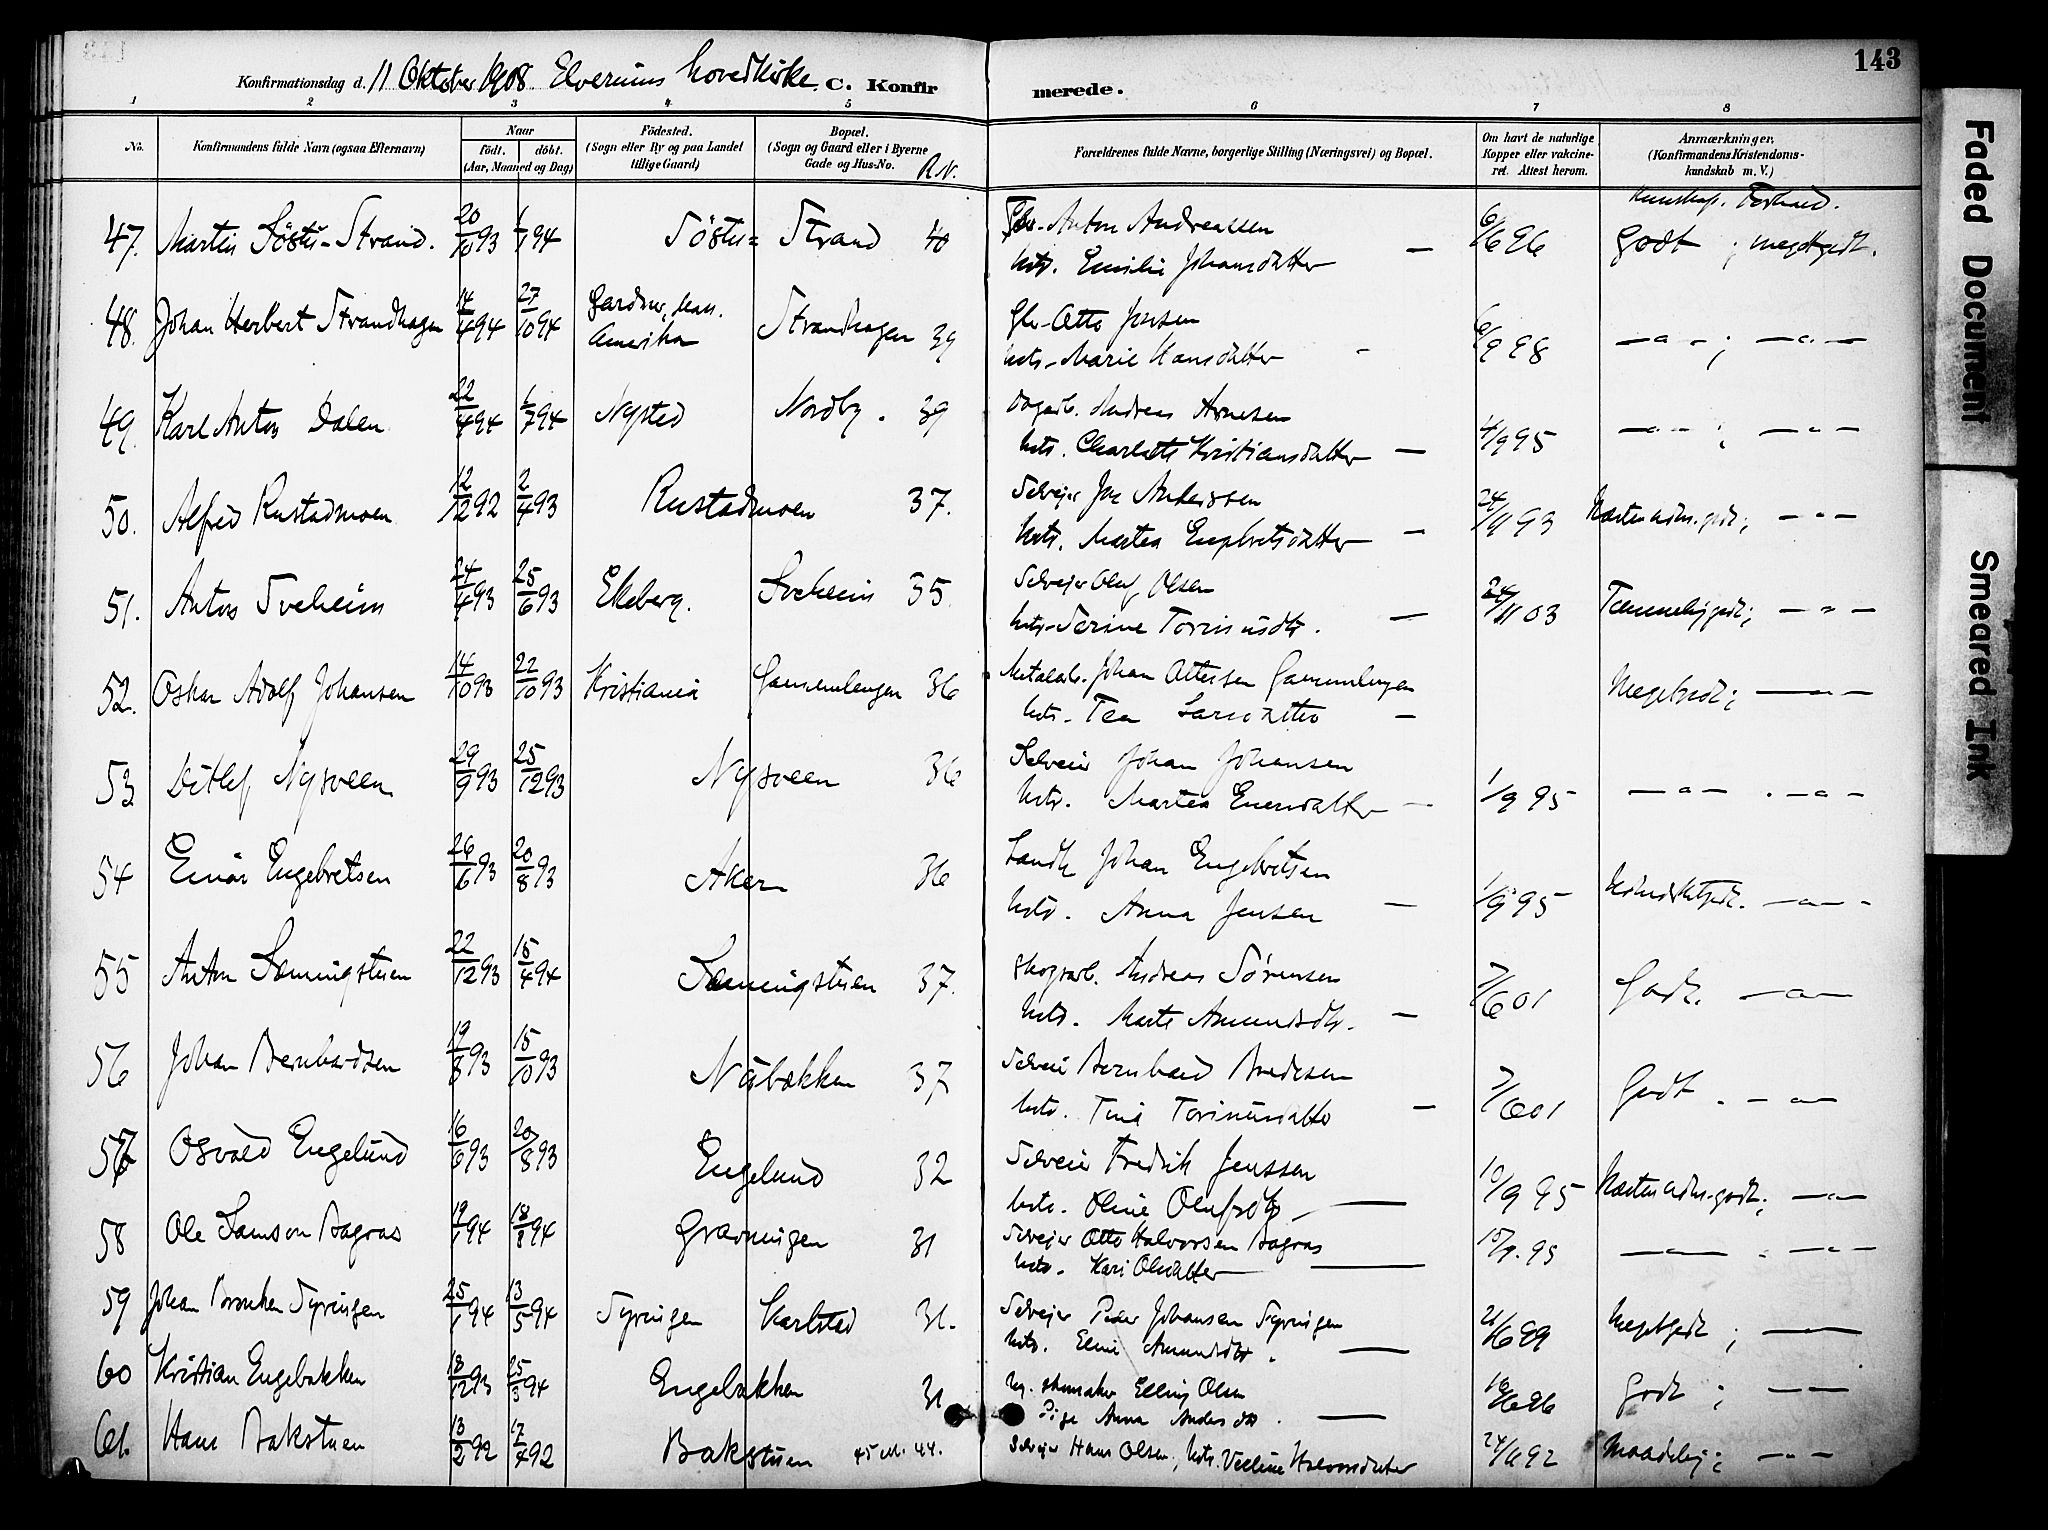 143
Konfirmationsdag d. 11 Oktober 1908 Elverums hovedkirke C. Konfirmerede.
1 2 3 4 5 6 7 8
No. Konfirmandens fulde Navn (ogsaa Efternavn) Naar födt. döbt. (Aar, Maaned og Dag) Födested. (Sogn eller By og paa Landet tillige Gaard) Bopæl. (Sogn og Gaard eller i Byerne Gade og Hus-No. R.N. Forældrenes fulde Navne, borgerlige Stilling (Næringsvei) og Bopæl. Om havt de naturlige Kopper eller vakcineret. Attest herom. Anmærkninger. (Konfirmandens Kristendomskundskab m. V.)
Kunskap. Forhold.
47. Martin Söstu-Strand. 20/10 93 1/1 94 Söstu= Strand 40 Anton Andreassen 6/6 96 Godt ; megetgodt.
hstr. Emilie Johansdatter —
48. Johan Herbert Strandhagen 14/4 94 27/10 94 Gardner, Mass. Amerika Strandhagen 39 Otto Jensen 6/9 98 —"— ; —"—
hstr. Marie Hansdatter -
49. Karl Anton Dalen 22/4 94 1/7 94 Nysted Nordby. 39 Dagarb. Andreas Arnesen 4/9 95 —"— ; —"—
hstr. Charlotte Kristiansdatter —
50. Alfred Rustadmoen 12/12 92 2/4 93 Rustadmoen 37. Selvejer Jon Anderssen 24/11 93 Næsten udm. godt; —"—
hstr. Martea Engebretsdatter —
51. Anton Sveheim 24/4 93 25/6 93 Ekeberg. Sveheim 35. Selvejer Oluf Olsen 24/11 03 Temmelig godt; —"—
hstr. Serine Torinusdtr. —
52. Oskar Adolf Johansen 14/10 93 22/10 93 Kristiania Gammelengen 36 Metalarb. Johan Ottersen Gammelengen Megetgodt; —"—
hstr. Tea Larsdatter —
53 Ditlef Nysveen 29/9 93 25/12 93 Nysveen 36 Selveier Johan Johansen 1/9 95 —"— . —"—
hstr. Martea Evensdatter —
54 Einar Engebretsen 26/6 93 20/8 93 Aker 36 Landh. Johan Engebretsen 1/9 95 —"—
hstr. Anna Jensen —
55 Anton Sæmingstuen 22/12 93 15/4 94 Sæmingstuen 37. Skogsarb. Andreas Sörensen 7/6 01 Godt. —"—
hstr. Marte Amundsdtr. —
56 Johan Bernhardsen 19/8 93 15/10 93 Näbækken 37 Selveier Bernhard Bredesen 7/6 01 Godt . —"—
hstr. Tina Torinusdatter —
57 Osvald Engelund 16/6 93 20/8 93 Engelund 32 Selveier Fredrik Jenssen 10/9 95 Næsten udm. godt; —"—
hstr. Oline Olufsdtr —
58 Ole Samson Bagras 19/1 94 18/8 94 Grævningen 31 Selvejer Otto Halvorsen Bagras 10/9 95 —"— . —"—
hstr. Kari Olsdatter —
59 Johan Syringen 25/1 94 13/5 94 Syringen Karlstad 31. Selvejer Peder Johansen Syringen 21/6 99 Megetgodt ; —
hstr. Eline Amundsdtr. —
60 Kristian Engebakken 18/12 93 25/3 94 Engebakken 31 Ug. skomaker Elling Olsen 18/6 96 Godt ; —
Pige Anna Andersdtr. —
61. Hans Bakstuen 13/2 92 17/4 92 Bakstuen 45 44. Selvejer Hans Olsen, hstr. Veeline Halvorsdatter 24/11 92 Maadelig; —"—
Faded Document
Smeared Ink